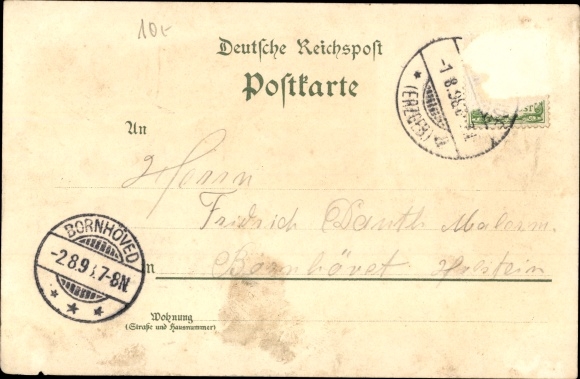 10.-
Deutsche Reichspost
Postkarte
An
Herrn
Fridrich Danth Malerm.
in Bornhövet Holstein
Wohnung
(Straße und Hausnummer)
BORNHÖVED
-2.8.9 7-8N
-1.8.98
(ERZGEB.)